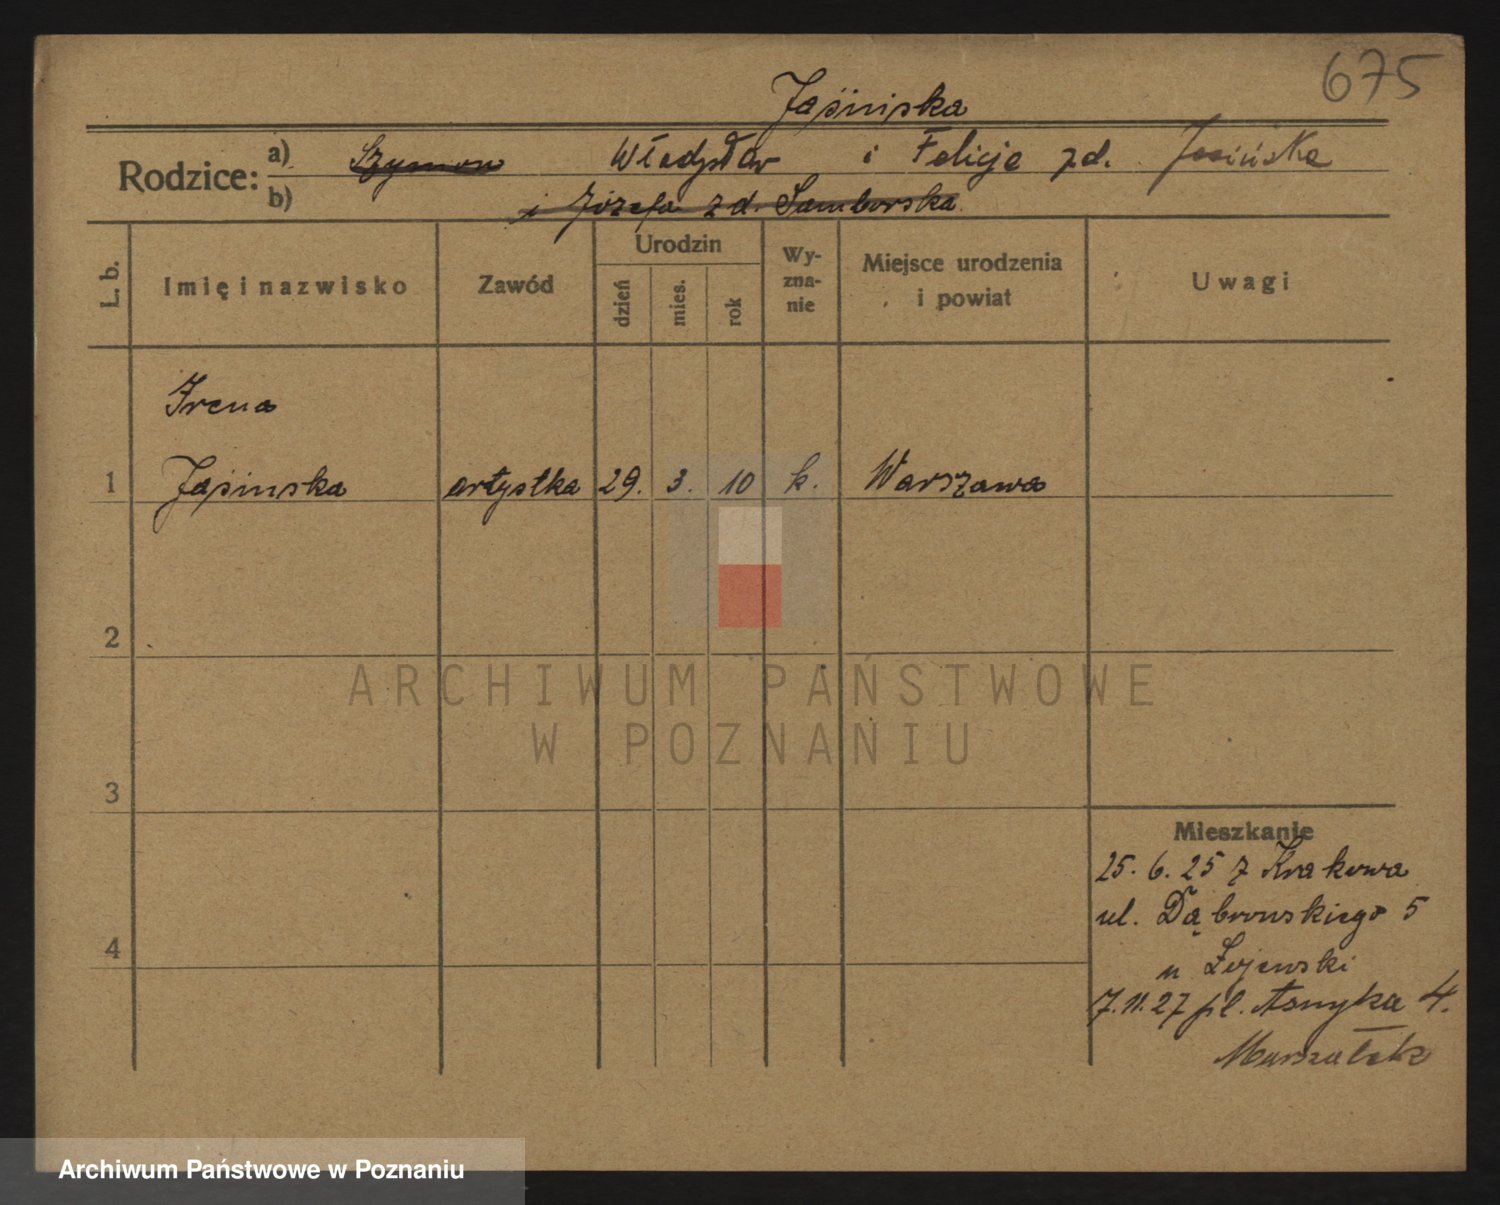 675
Jaśinska
Rodzice:
a) Szymon Władysław i Felicja zd. Jasińska
b) i Józefa zd. Samborska
L. b.
Imię i nazwisko
Zawód
Urodzin
dzień
mies.
rok
Wy-
zna-
nie
Miejsce urodzenia
i powiat
Uwagi
Irena
1 Jaśinska artystka 29. 3. 10 k. Warszawa
2
3
4
Mieszkanie
25. 6. 25 z Krakowa
ul. Dąbrowskiego 5
u Łojewski
7.11.27 pl. Asnyka 4.
Marszałek
ARCHIWUM PAŃSTWOWE
W POZNANIU
Archiwum Państwowe w Poznaniu